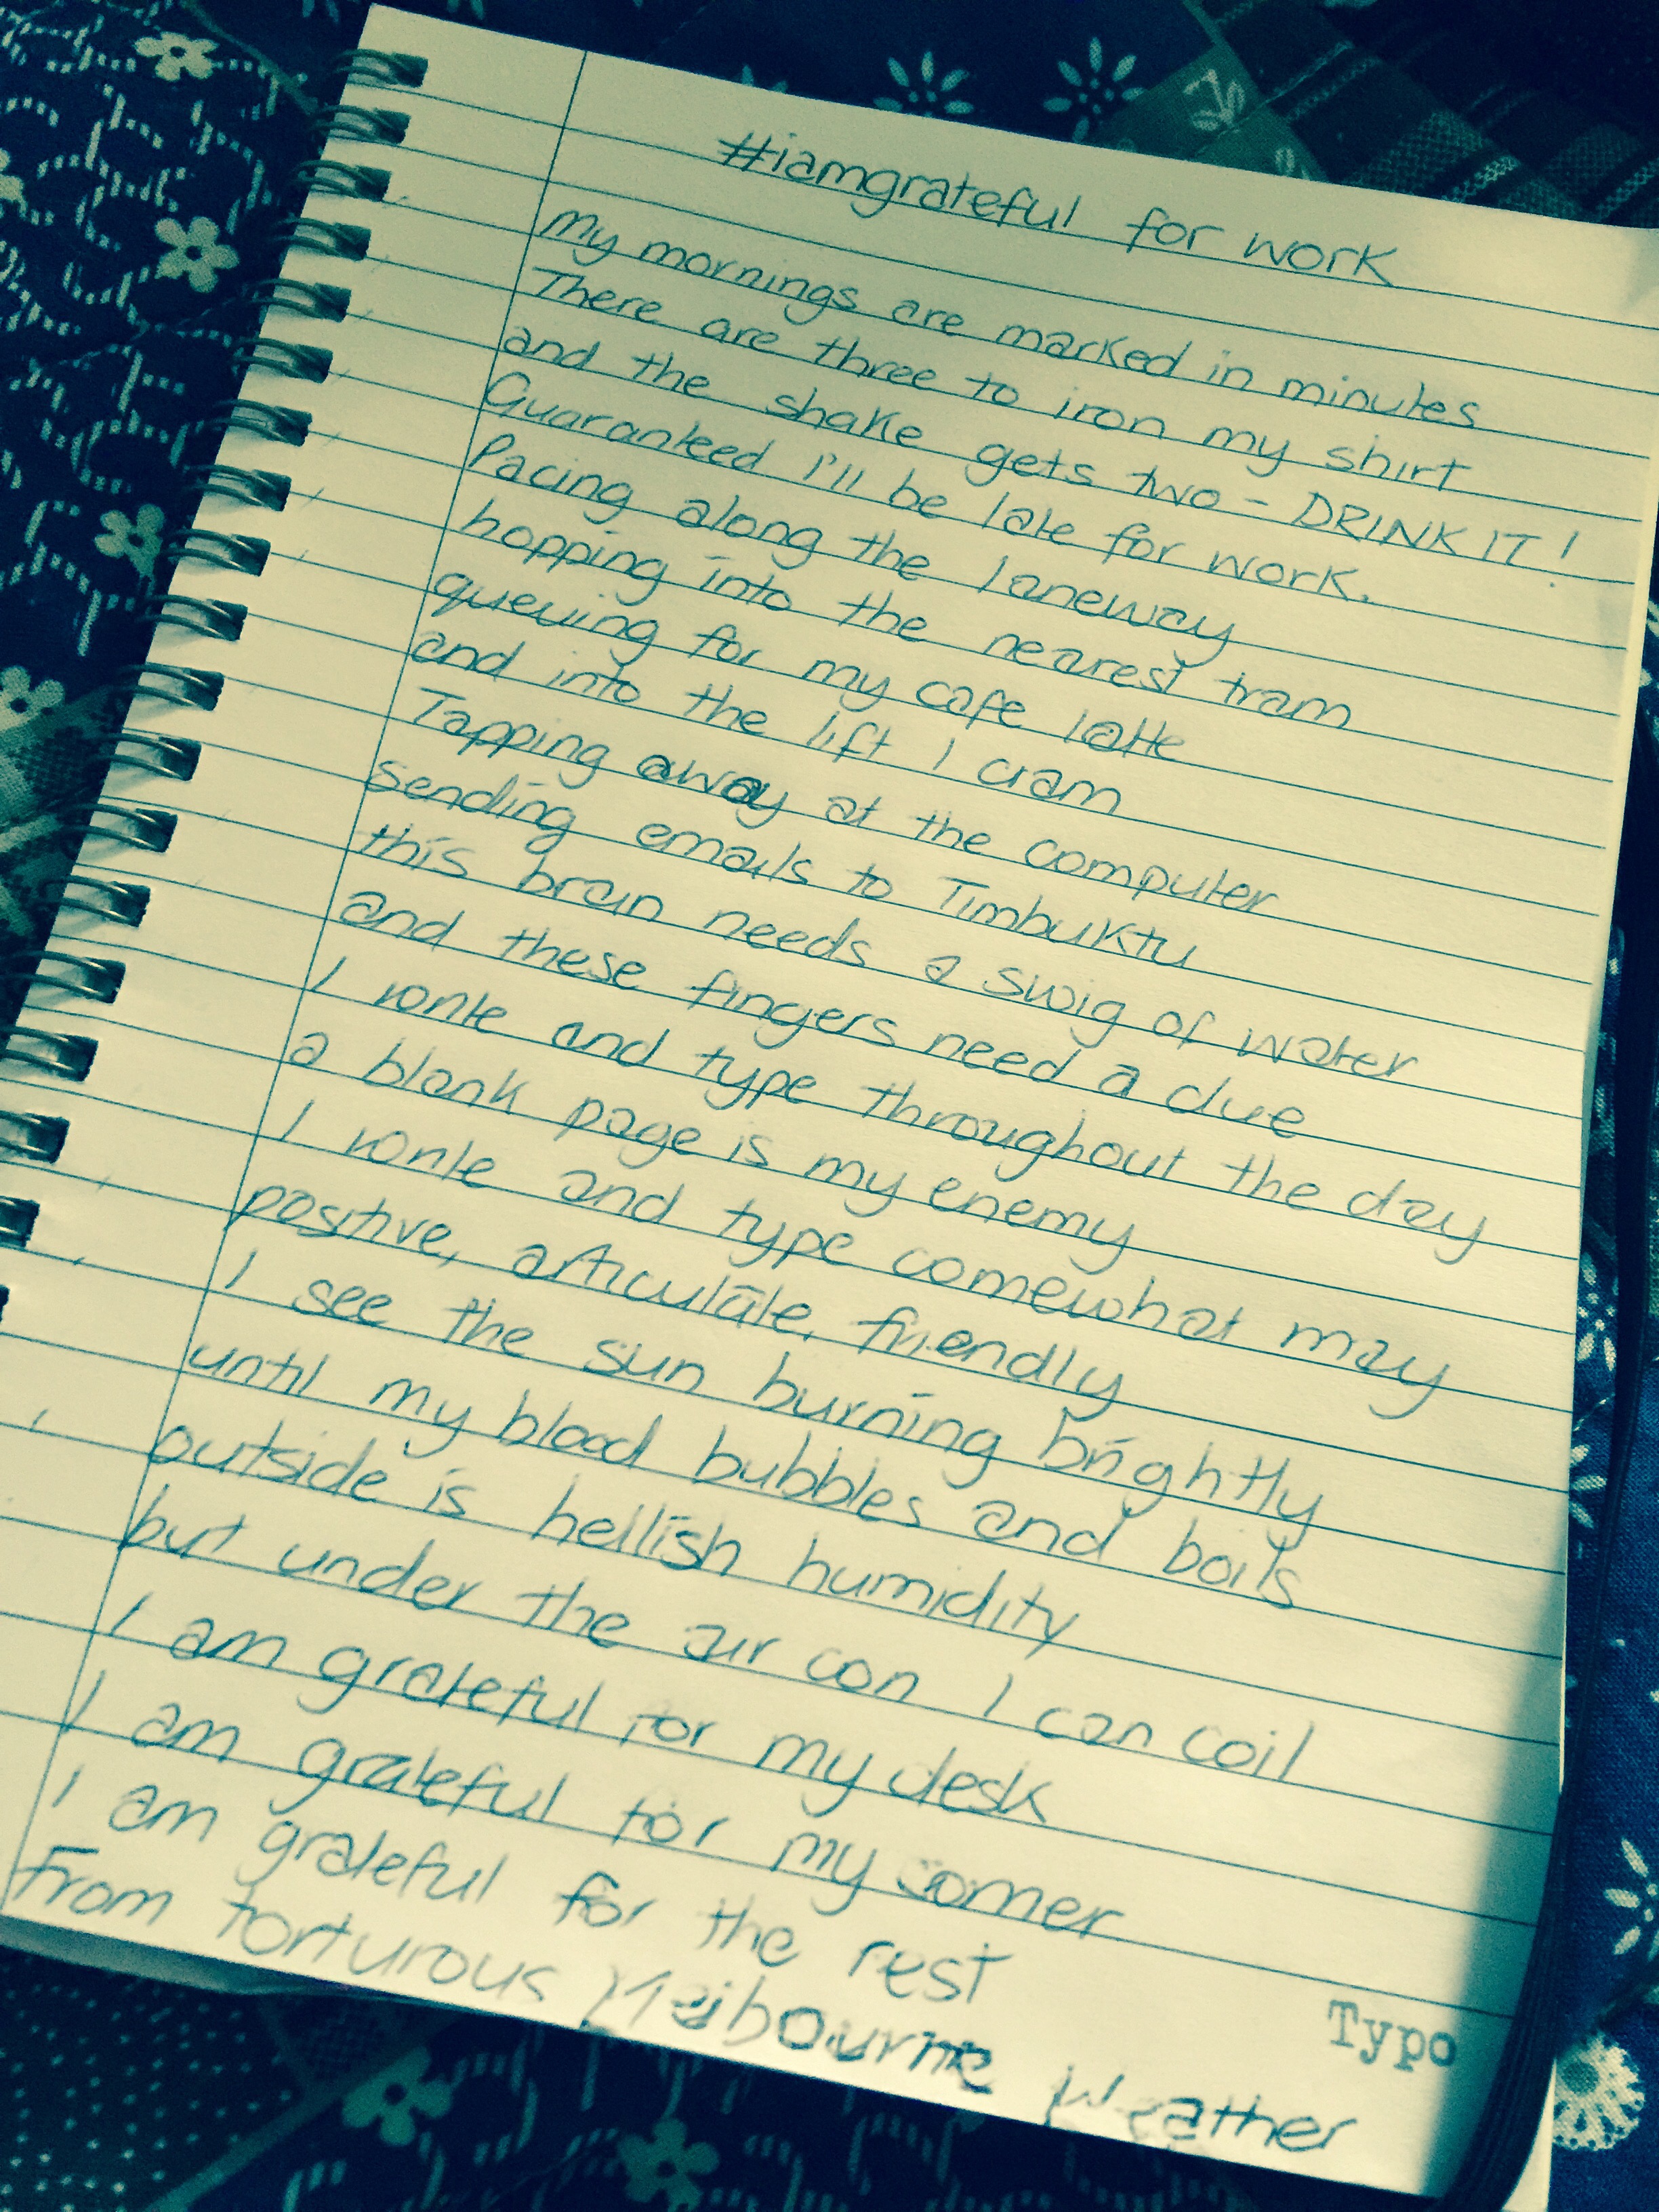 #iamgrateful for work
My mornings are marked in minutes
There are three to iron my shirt
and the shake gets two - DRINK IT!
Guaranteed I'll be late for work.
Pacing along the laneway
hopping into the nearest tram
queuing for my cafe latte
and into the lift I cram
Tapping away at the computer
sending emails to Timbuktu
this brain needs a swig of water
and these fingers need a clue
I write and type throughout the day
a blank page is my enemy
I write and type comewhat may
positive, articulate, friendly
I see the sun burning brightly
until my blood bubbles and boils
outside is hellish humidity
but under the air con I can coil
I am grateful for my desk
I am grateful for my corner
I am grateful for the rest
From torturous Melbourne Weather
Typo